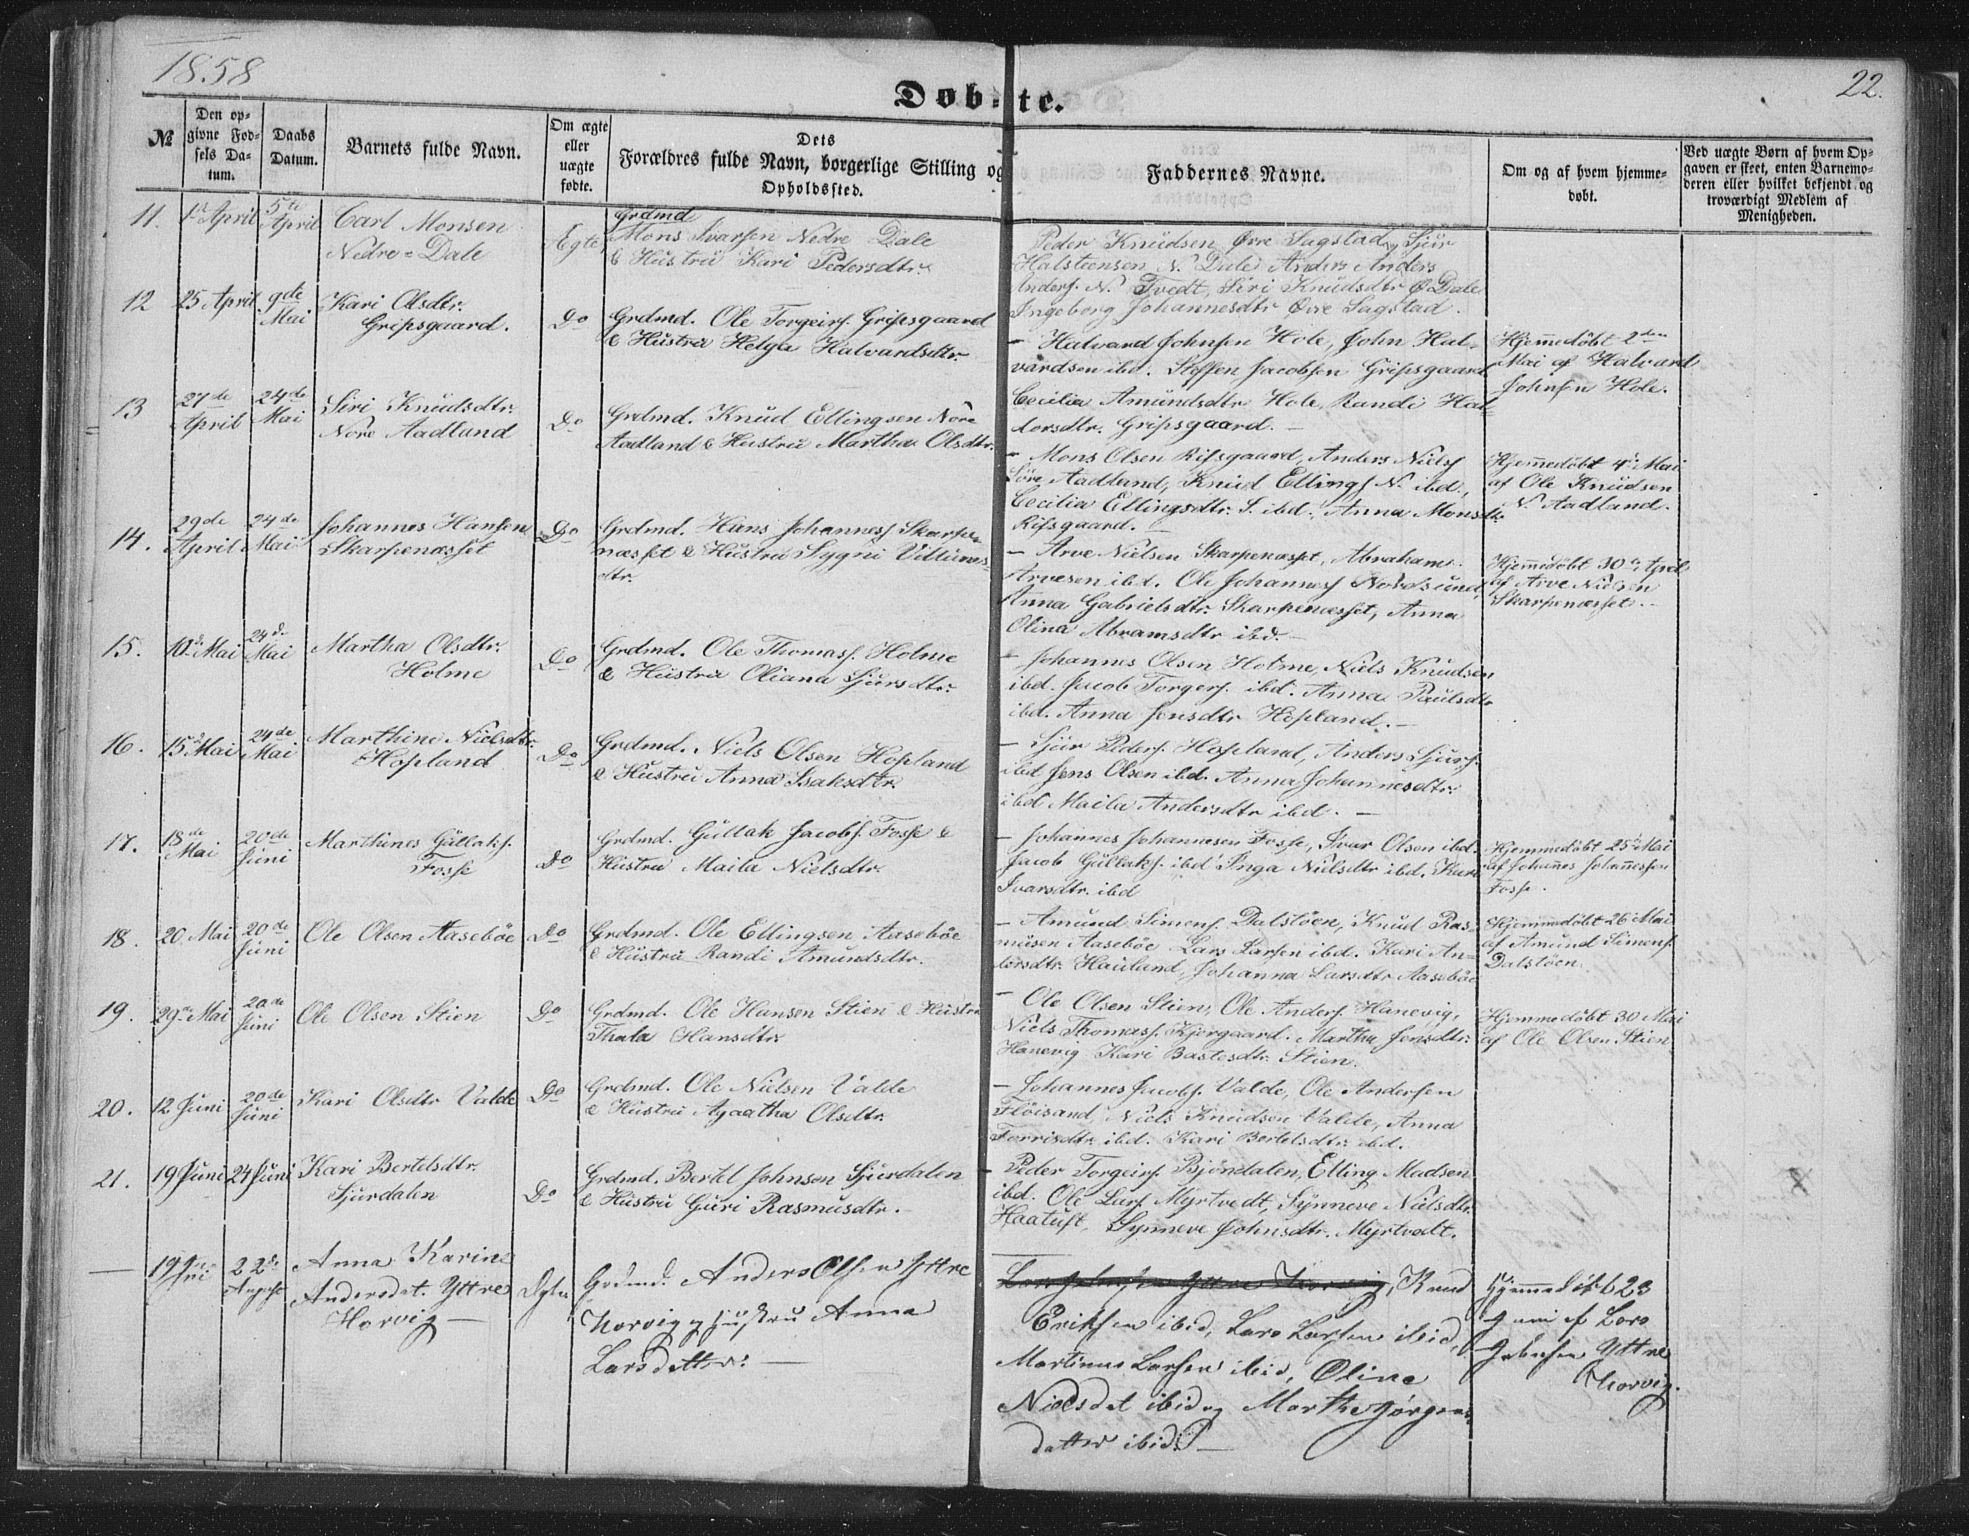 1858
22.
Døb-te.
№
Den op-
givne Fød-
sels Da-
tum.
Daabs
Datum.
Barnets fulde Navn.
Om ægte
eller
uægte
fødte.
Dets
Forældres fulde Navn, borgerlige Stilling og
Opholdssted.
Faddernes Navne.
Om og af hvem hjemme-
døbt.
Ved uægte Børn af hvem Op-
gaven er skeet, enten Barnemo-
deren eller hvilket bekjendt og
troværdigt Medlem af
Menigheden.
11.
April
5te
April
Carl Monsen
Nedre-Dale
Ægte
Grdmd
Mons Ivarsen Nedre Dale
& Hustru Kari Pedersdtr.
Peder Knudsen Øvre Sagstad, Sjur
Halsteensen N. Dale Anders Anders
Anders. N. Tvedt, Siri Knudsdtr Ø Dale
Ingeborg Johannesdtr Øvre Sagstad.
12
25 April
9de
Mai
Kari Olsdtr.
Gripsgaard.
Do
Grdmd. Ole Torgeirs. Gripsgaard
& Hustru Helga Halvardsdtr.
- Halvard Johnsen Hole, John Hal-
vardsen ibd. Steffen Jacobsen Gripsgaard
Cecilia Amundsdtr Hole, Randi Hal-
dorsdtr. Gripsgaard. -
Hjemmedöbt 2den
Mai af Halvard
Johnsen Hole.
13
27de
April
24de
Mai
Siri Knudsdtr.
Nore Aadland
Do
Grdmd. Knud Ellingsen Nore
Aadland & Hustru Martha Olsdtr.
- Mons Olsen Rifsgaard, Anders Niels
Söre Aadland, Knud Ellings N. ibd.,
Cecilia Ellingsdtr S. ibd., Anna Monsdtr
Rifsgaard. -
Hjemmedöbt 4. Mai
af Ole Knudsen
N. Aadland.
14.
29de
April
24de
Mai
Johannes Hansen
Skarpenæsset
Do
Grdmd. Hans Johanness Skarpe-
næsset & Hustru Sygni Villums-
dtr.
- Arve Nielsen Skarpenæsset, Abraham
Arvesen ibd. Ole Johanness Nordsund,
Anna Gabrielsdtr. Skarpenæsset, Anna
Olina Abramsdtr ibd. -
Hjemmedöbt 30te April
af Arve Nielsen
Skarpenæsset. -
15.
10de Mai
24de
Mai
Martha Olsdtr.
Holme
Do
Grdmd. Ole Thomass. Holme
& Hustru Oliana Sjursdtr.
- Johannes Olsen Holme, Niels Knudsen
ibd. Jacob Torgers. ibd. Anna Paulsdtr
ibd. Anna Jensdtr Hopland. -
16.
15de Mai
24de
Mai
Marthine Nielsdtr.
Hopland
Do
Grdmd. Niels Olsen Hopland
& Hustru Anna Isaksdtr.
- Sjur Peders. Hopland, Anders Sjurs.
ibd Jens Olsen ibd. Anna Johannesdtr.
ibd Maila Andersdtr ibd. -
17.
18de
Mai
20de
Juni
Marthines Gullaks.
Fosse
Do
Grdmd. Gullak Jacobs. Fosse &
Hustru Maila Nielsdtr.
- Johannes Johannesen Fosse, Ivar Olsen ibd.
Jacob Gullaks. ibd Inga Nielsdtr ibd. Kari
Ivarsdtr. ibd
Hjemmedöbt 25 Mai
af Johannes Johannessen
Fosse.
18.
20. Mai
20de
Juni
Ole Olsen Aaseböe
Do
Grdmd. Ole Ellingsen Aaseböe
& Hustru Randi Amundsdtr.
- Amund Simens. Dalstöen, Knud Ras-
musen Aaseböe Lars Larsen ibd. Kari An-
dersdtr. Hauland, Johanna Larsdtr Aaseböe
Hjemmedöbt 26 Mai
af Amund Simens.
Dalstöen.
19.
29de Mai
20de
Juni
Ole Olsen Stien
Do
Grdmd. Ole Hansen Stien & Hustru
Thala Hansdtr.
- Ole Olsen Stien, Ole Anders. Hanevig,
Niels Thomass. Kjergaard. Martha Jensdtr.
Hanevig Kari Bastesdtr. Stien.
Hjemmedöbt 30 Mai
af Ole Olsen Stien
20.
12 Juni
20de
Juni
Kari Olsdtr Valde
Do
Grdmd. Ole Nielsen Valde
& Hustru Agaatha Olsdtr.
- Johannes Jacobs. Valde, Ole Andersen
Flöisand, Niels Knudsen Valde, Anna
Torrisdtr ibd. Kari Bertelsdtr ibd.
21.
19 Juni
24 Juni
Kari Bertelsdtr.
Sjurdalen
Do
Grdmd. Bertel Johnsen Sjurdalen
& Hustru Guri Rasmusdtr.
- Peder Torgeirs. Bjöndalen, Elling Madsen
ibd. Ole Lars Myrtvedt, Synneve Nielsdtr
Haatuft, Synneve Johnsdtr. Myrtvedt.
—
19
22de
August
Anna Karine
Andersdt. Yttre
Horvig —
Ægte
Grdmd. Anders Olsen Yttre
Horvig og Hustru Anna
Larsdatter. —
Yttre Horvig, Knud
Eriksen ibid, Lars Larsen ibid,
Martinus Larsen ibid, Oline
Nielsdet ibid og Marthe Jørgens
datter ibid. —
Hjemmedøbt 23
Juni af Lars
Yttre
Horvig.